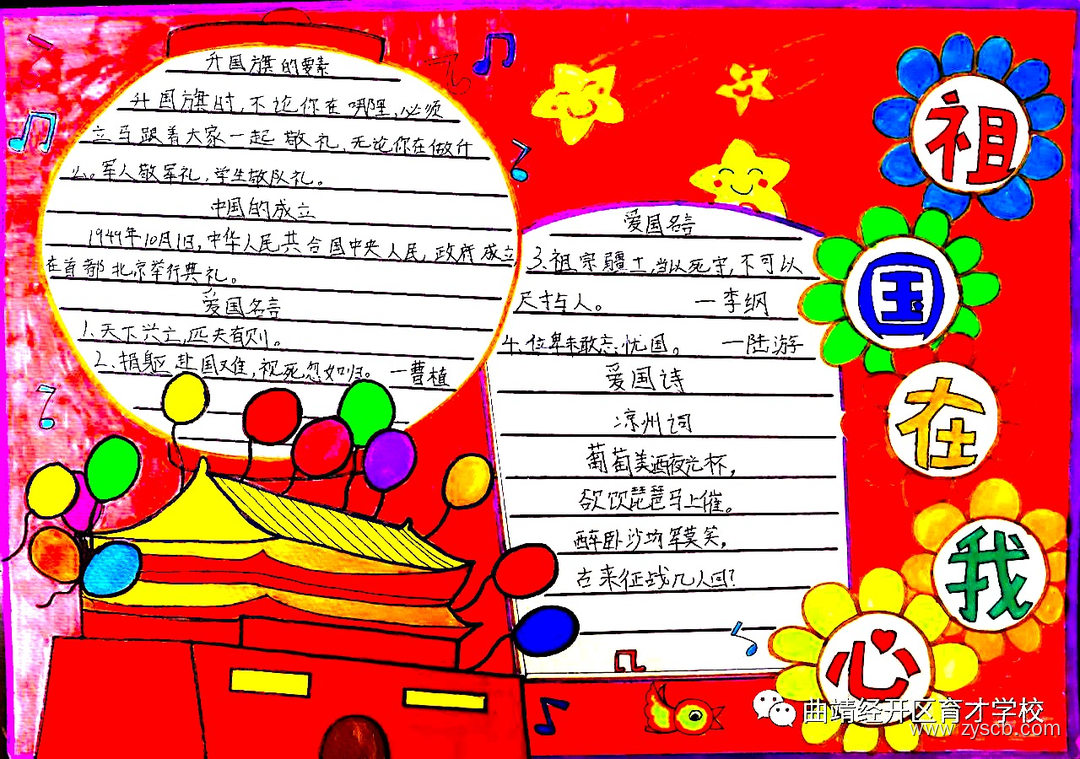 升国旗的要素
升国旗时,不论你在哪里,必须
立马跟着大家一起敬礼,无论你在做什
么。军人敬军礼,学生敬队礼。
中国的成立
1949年10月1日,中华人民共合国中央人民,政府成立
在首都北京举行典礼。
爱国名言
1.天下兴亡,匹夫有则。
2.捐躯赴国难,视死忽如归。 一曹植
爱国名言
3.祖宗疆土,当以死守,不可以
尺寸与人。 一李纲
4.位卑未敢忘忧国。 一陆游
爱国诗
凉州词
葡萄美酒夜光杯,
欲饮琵琶马上催。
醉卧沙场军莫笑,
古来征战几人回?
祖
国
在
我
心
曲靖经开区育才学校
www.zyscb.com